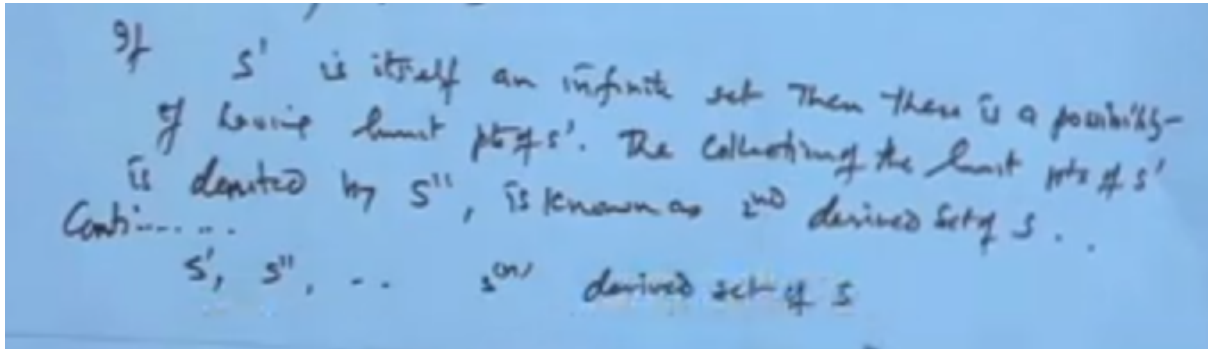 If S' is itself an infinite set then there is a possibility
of having limit pts of S'. The collection of the limit pts of S'
is denoted by S'', is known as 2nd derived set of S..
Conti......
S', S'', .. S(n) derived set of S